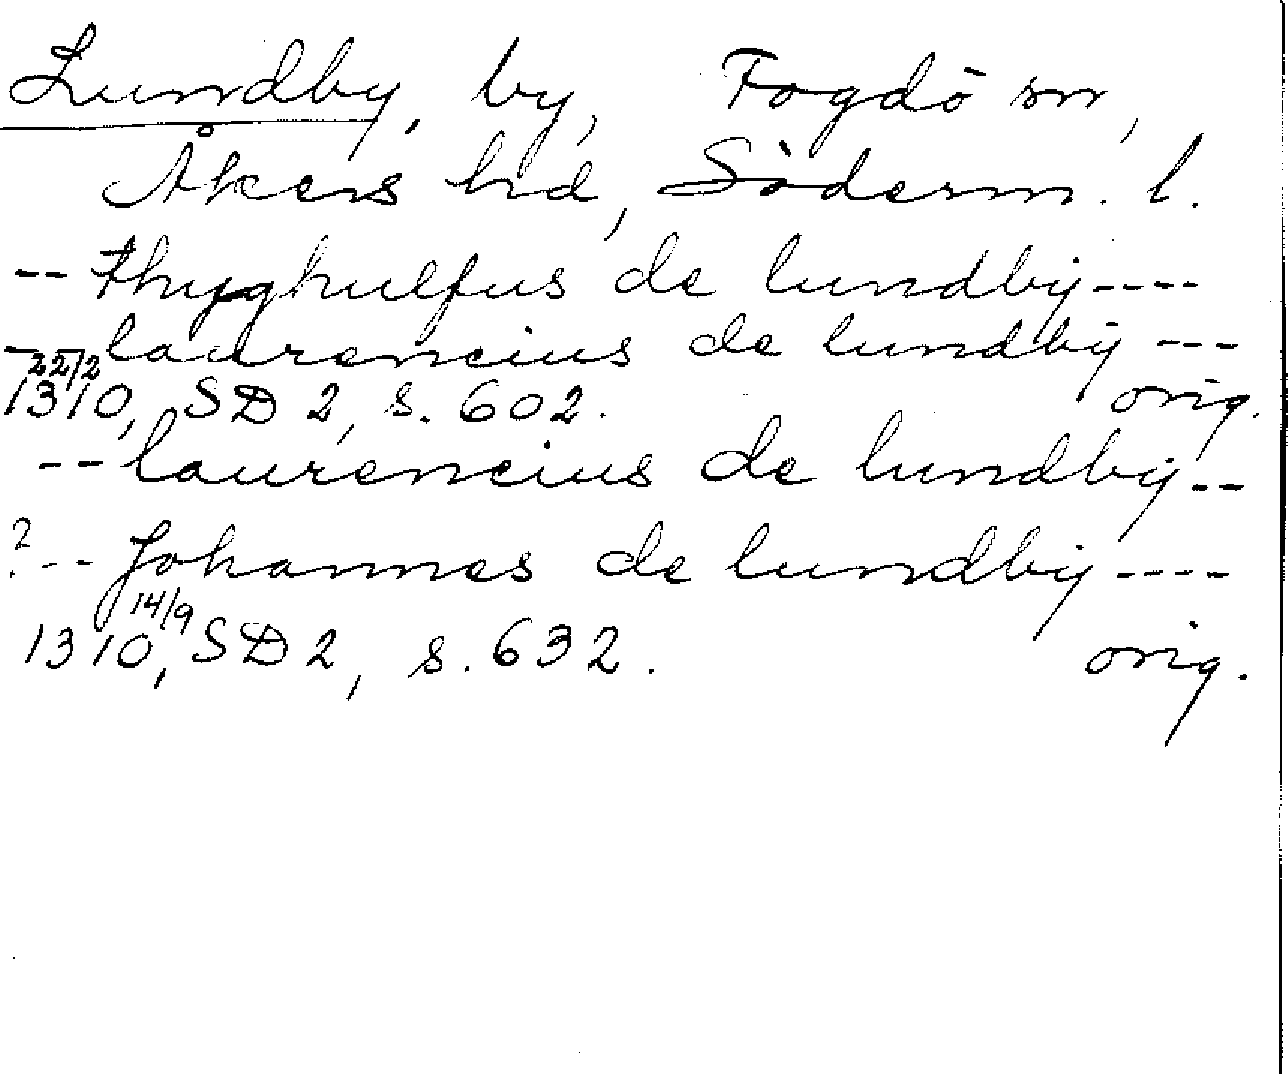 Lundby, by, Fogdö sn,
Åkers hd, Söderm. l.
-- thyghulfus de lundby ----
-- laurencius de lundby ---
22/2
1310, SD 2, s. 602. orig.
-- laurencius de lundby --
? -- Johannes de lundby ----
14/9
1310, SD 2, s. 632. orig.